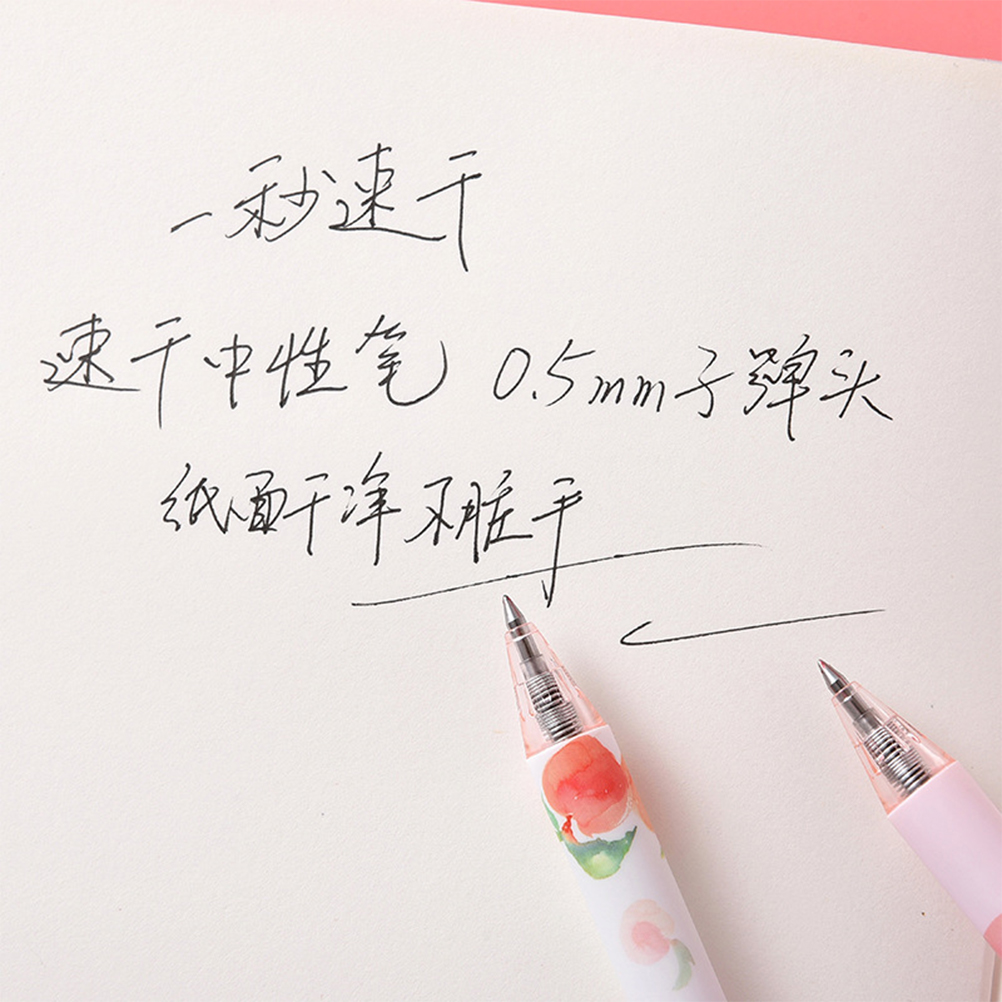 一秒速干
速干中性笔 0.5mm子弹头
纸面干净不脏手